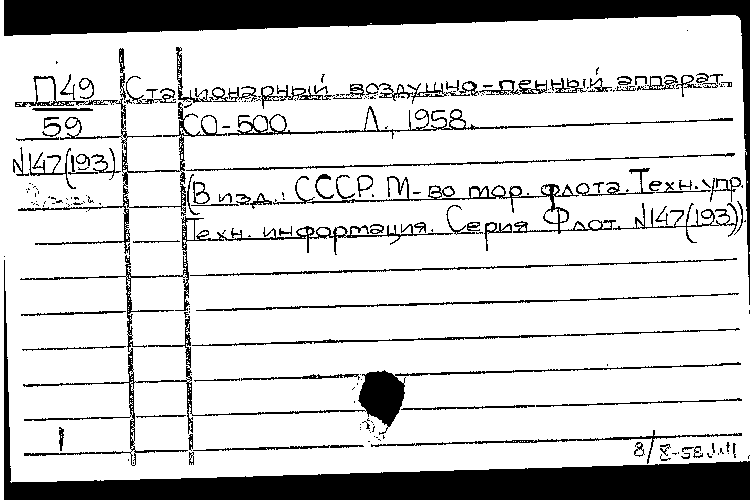 П49 Стационарный воздушно-пенный аппарат
59 СО-500. Л., 1958.
№147(193)
(В изд.: СССР. М-во мор. флота. Техн. упр.
Техн. информация. Серия Флот. №147(193))
1
8/X-58